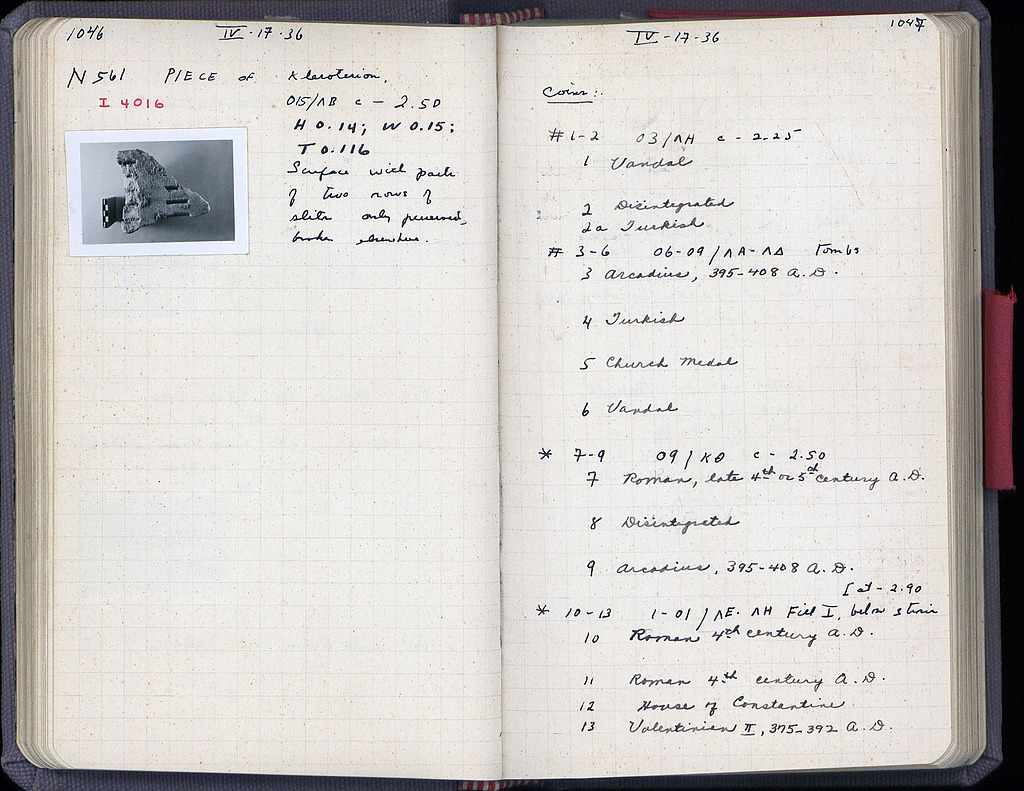 1046 IV-17-36
N 561 PIECE OF Kleroterion.
I 4016
015/ΛΒ c - 2.50
H 0.14; W 0.15;
T 0.116
Surface with parts
of two rows of
slits only preserved,
broken elsewhere.
IV-17-36 1047
Coins:
#1-2 03/ΛΗ c - 2.25
1 Vandal
2 Disintegrated
2a Turkish
# 3-6 06-09/ΛΑ-ΛΔ Tombs
3 Arcadius, 395-408 A.D.
4 Turkish
5 Church Medal
6 Vandal
* 7-9 09/ΚΘ c - 2.50
7 Roman, late 4th or 5th century A.D.
8 Disintegrated
9 Arcadius, 395-408 A.D.
[at - 2.90
* 10-13 1-01/ΛΕ-ΛΗ Fill I, below
10 Roman 4th century A.D.
11 Roman 4th century A.D.
12 House of Constantine
13 Valentinian II, 375-392 A.D.